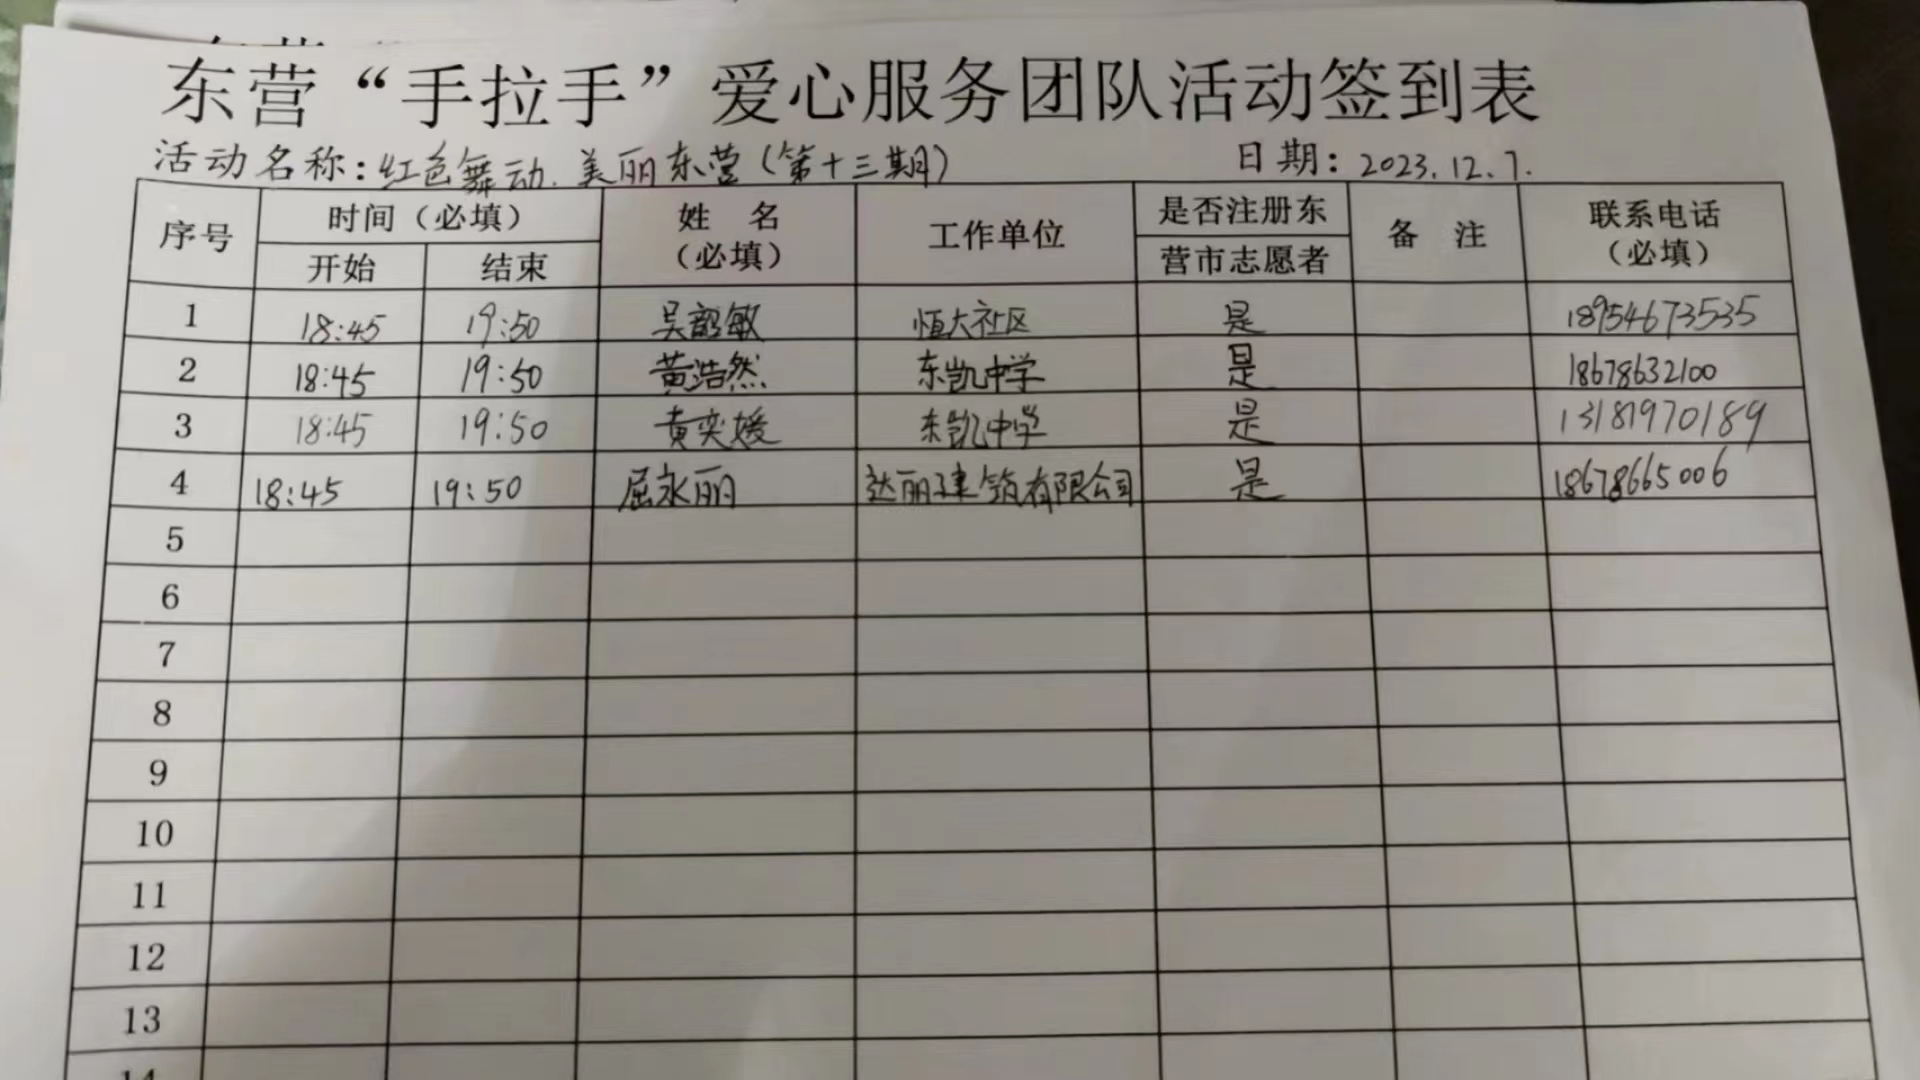 东营“手拉手”爱心服务团队活动签到表
活动名称：红色舞动.美丽东营（第十三期） 日期：2023.12.7.
序号 时间（必填） 姓 名（必填） 工作单位 是否注册东营市志愿者 备 注 联系电话（必填）
开始 结束
1 18:45 19:50 吴韶敏 恒大社区 是 18954673535
2 18:45 19:50 黄浩然 东凯中学 是 18678632100
3 18:45 19:50 黄奕媛 东凯中学 是 13181970189
4 18:45 19:50 屈永丽 达丽建筑有限公司 是 18678665006
5
6
7
8
9
10
11
12
13
14